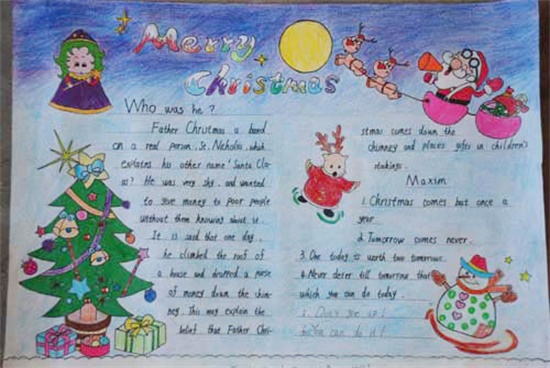 Merry
Christmas
Who was he?
Father Christmas a band
on a real person, St. Nicholas, which
explains his other name 'Santa Cla-
as? He was very shy and wanted
to give money to poor people
without them knowing about it.
It is said that one day,
he climbed the roof of
a house and dropped a purse
of money down the chim-
ney. This may explain the
belief that Father Chri-
stmas comes down the
chimney and places gifts in children's
stockings.
Maxim
1. Christmas comes but once a
year.
2. Tomorrow comes never.
3. One today is worth two tomorrow.
4. Never deter till tomorrow that
which you can do today.
You can do it!